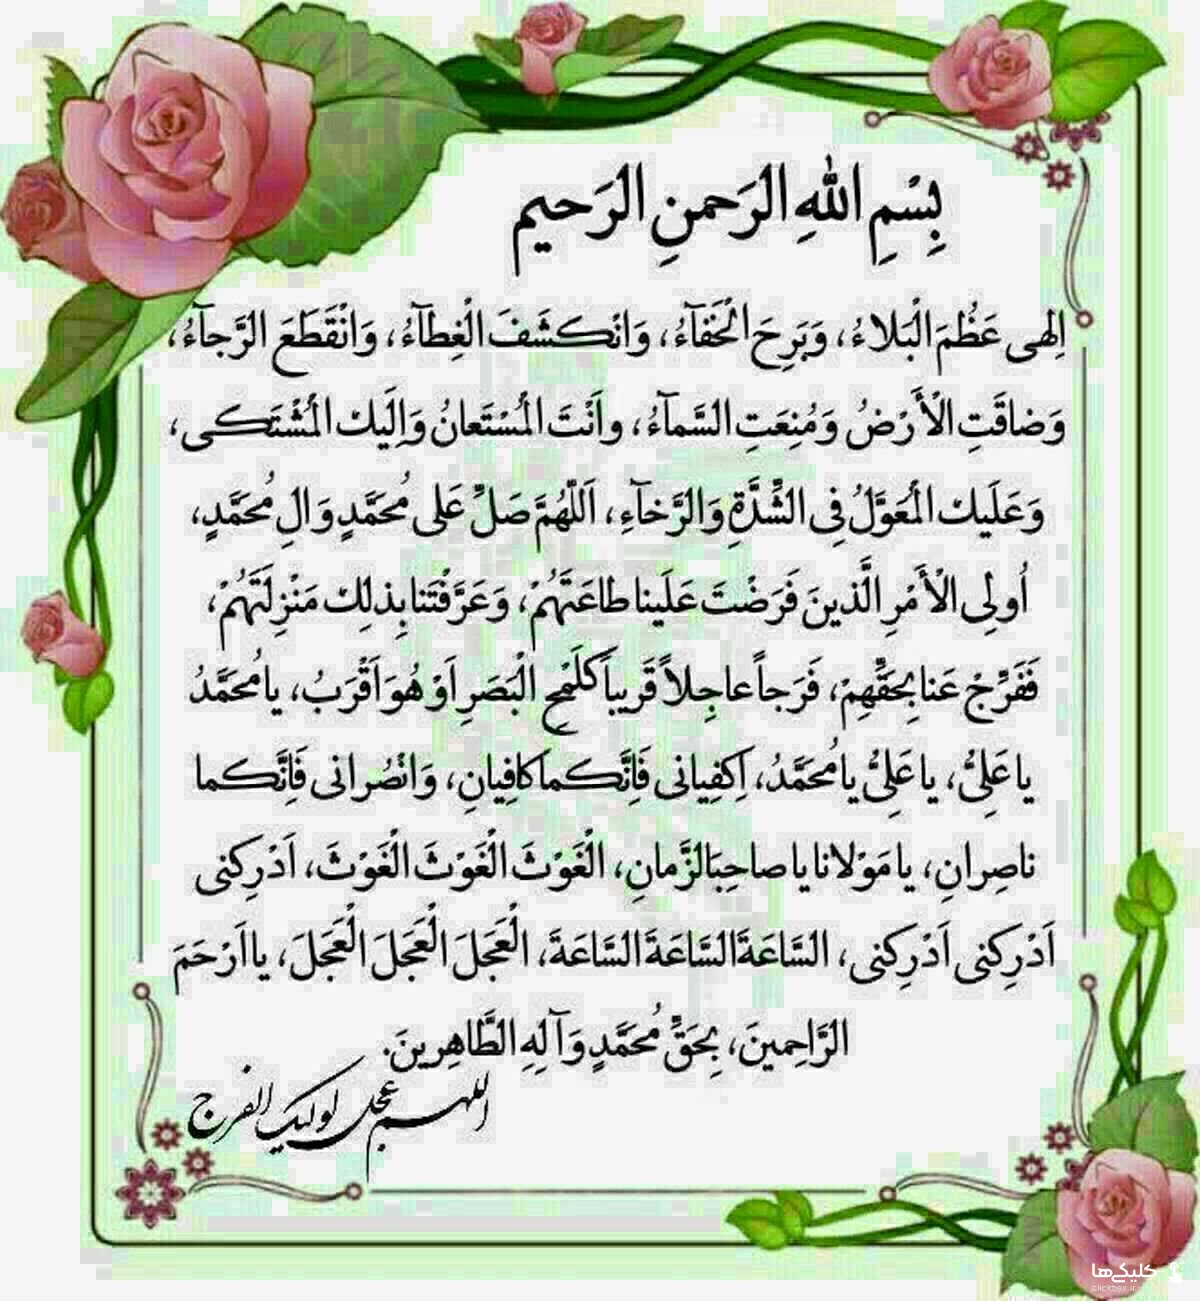 بِسْمِ اللهِ الرَحمنِ الرَحیم
اِلهی عَظُمَ الْبَلاءُ، وَبَرِحَ الْخَفآءُ، وَانْکَشَفَ الْغِطآءُ، وَانْقَطَعَ الرَّجآءُ،
وَضاقَتِ الْأَرْضُ وَمُنِعَتِ السَّمآءُ، واَنْتَ الْمُسْتَعانُ وَاِلَیك الْمُشْتَکی،
وَعَلَیك الْمُعَوَّلُ فِی الشِّدَّةِ وَالرَّخآءِ، اَللّهُمَّ صَلِّ عَلی مُحَمَّدٍ وَالِ مُحَمَّدٍ،
اُولِی الْأَمْرِ الَّذینَ فَرَضْتَ عَلَینا طاعَتَهُمْ، وَعَرَّفْتَنا بِذلِك مَنْزِلَتَهُمْ،
فَفَرِّجْ عَنا بِحَقِّهِمْ، فَرَجاً عاجِلاً قَریباً کَلَمْحِ الْبَصَرِ اَوْ هُوَ اَقْرَبُ، یا مُحَمَّدُ
یا عَلِیُّ، یا عَلِیُّ یا مُحَمَّدُ، اِکفِیانی فَاِنَّکما کافِیانِ، وَانْصُرانی فَاِنَّکما
ناصِرانِ، یا مَوْلانا یا صاحِبَ الزَّمانِ، الْغَوْثَ الْغَوْثَ الْغَوْثَ، اَدْرِکنی
اَدْرِکنی اَدْرِکنی، السَّاعَةَ السَّاعَةَ السَّاعَةَ، الْعَجَلَ الْعَجَلَ الْعَجَلَ، یا اَرْحَمَ
الرَّاحِمینَ، بِحَقِّ مُحَمَّدٍ وَآلِهِ الطَّاهِرینَ.
اللهم عجل لولیک الفرج
کلیکی‌ها
clickbax.ir